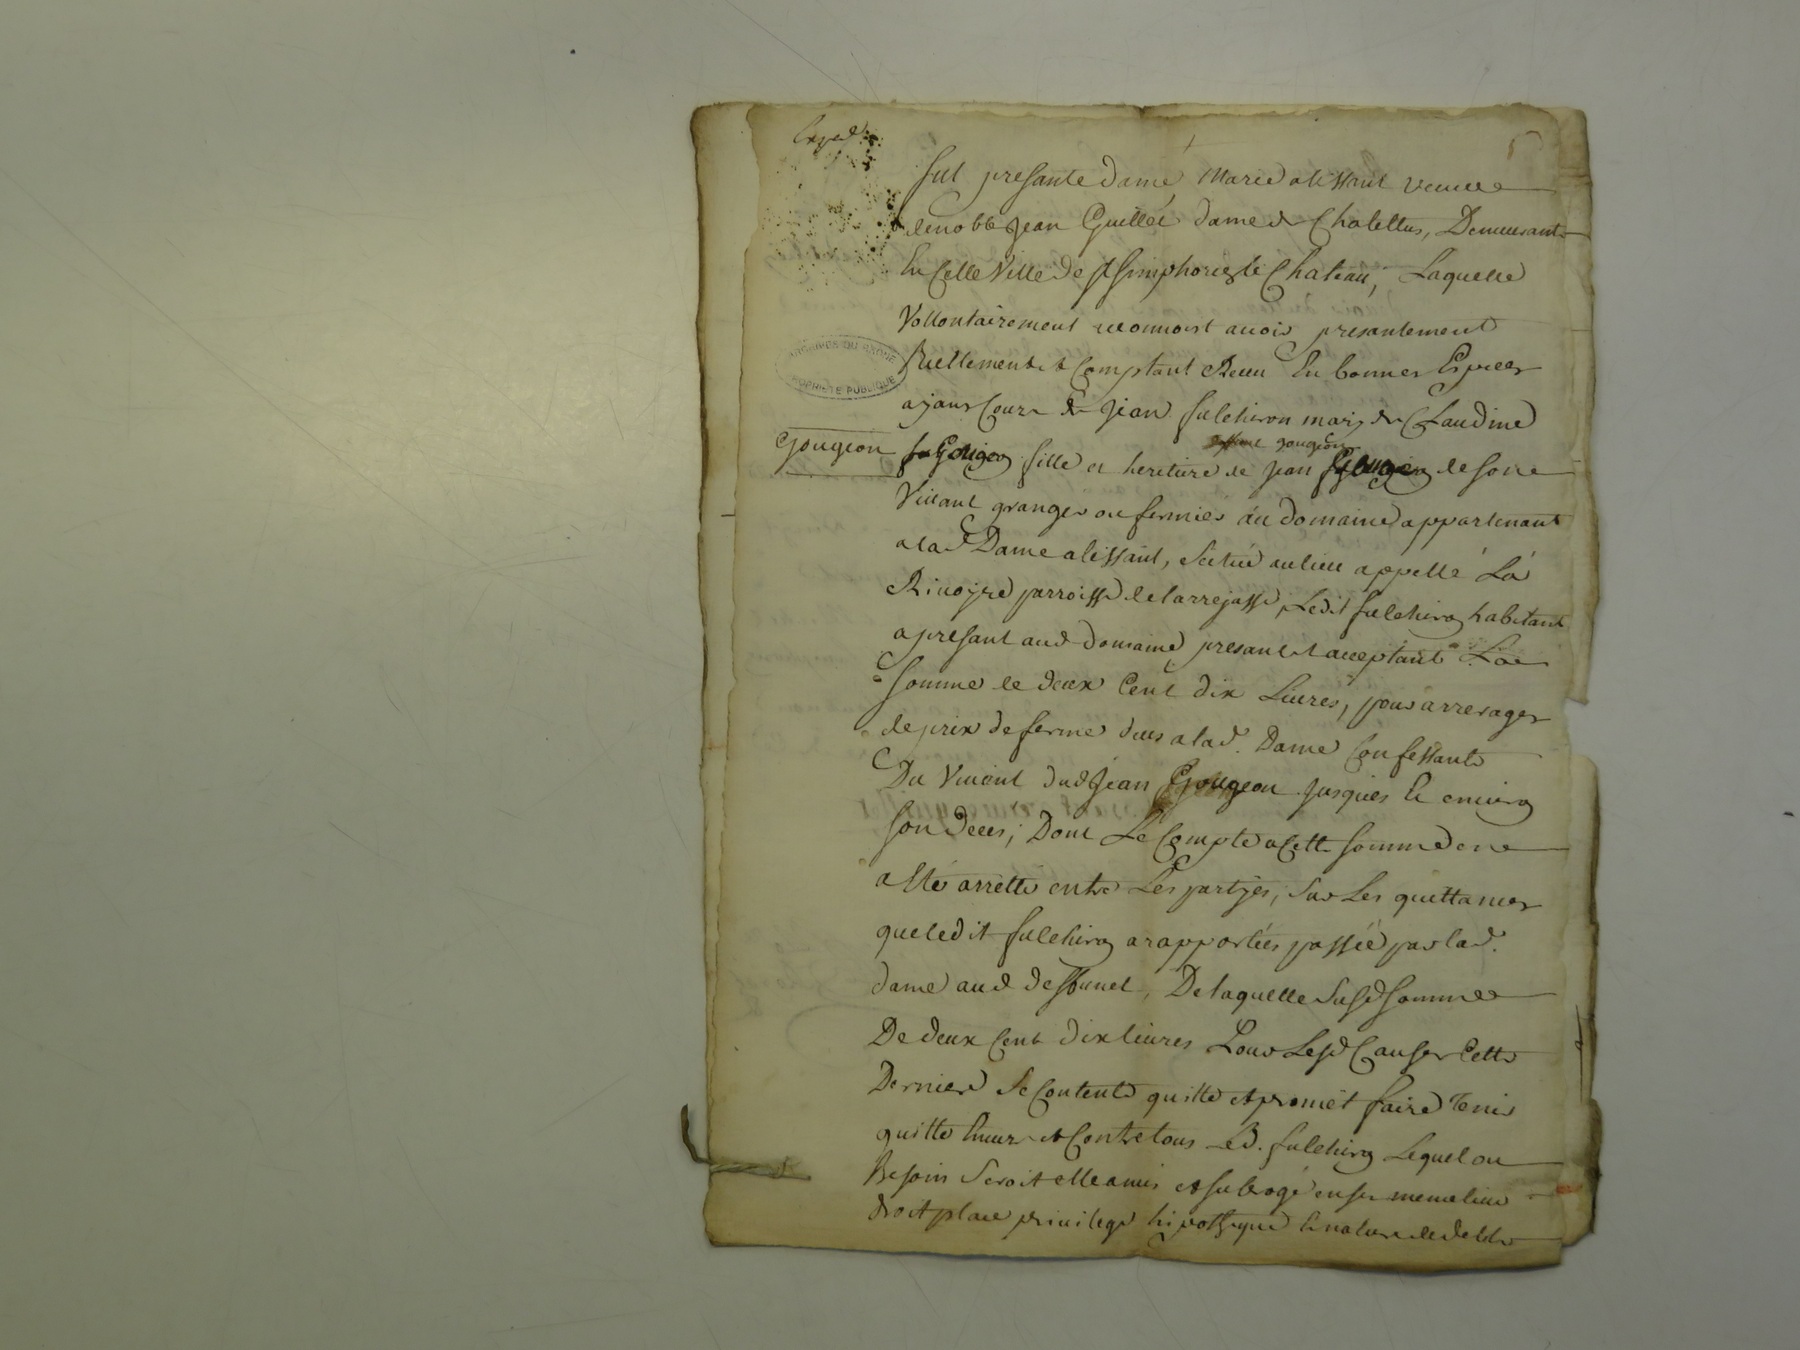 Exped.
fut presante dame Marie alissant veuve
de noble Jean Guillet dame de Chalettus, Demeurante
En Cette Ville de St Simphorien le Chateau, Laquelle
Vollontairement reconnoist avoir presantement
Reellement et Comptant Receu En bonnes Especes
ayant Cours de Jean fulchiron mary de Claudine
Gougeon
Gougeon fille et heritiere de Jean Gougeon de son
deffunt gougeon
Vivant granger ou fermier du domaine appartenant
a lad Dame alissant, Scitué au lieu appellé La
Rivoyre parroisse de larrejasse, Ledit fulchiron habitant
a presant aud domaine presant et acceptant La
Somme de deux Cent dix Livres, pour arrerages
de prix de ferme dues a lad. Dame Confessante
Du Vivant dud Jean Gougeon Jusques a environ
son deces; Dont Le Compte a Cette somme en
a esté arretté entre Les partyes, Sur Les quittances
que ledit fulchiron a rapportées passée par lad.
dame aud deffunct, De laquelle Susd somme
De deux Cent dix livres Pour Lesd Causes Cette
Derniere Se Contente quitte et promet faire Tenir
quitte Envers et Contre tous Led. fulchiron Lequel ou
Besoin Seroit Elle a mis et subrogé en ses meme lieu
droit place privilege hipotheque et nature de debte
ARCHIVES DU RHONE
PROPRIETE PUBLIQUE